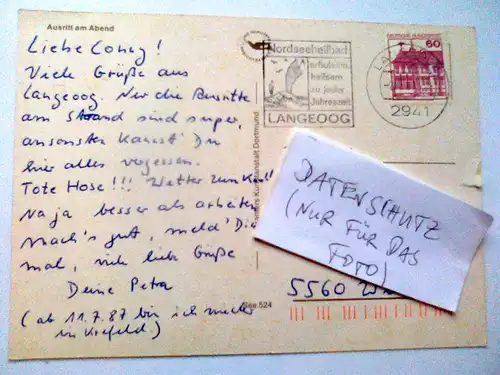 Ausritt am Abend
Liebe Conny!
Viele Grüße aus
Langeoog. Nur die Ausritte
am Strand sind super,
ansonsten kannst Du
hier alles vergessen.
Tote Hose!!! Wetter zum
Naja besser als arbeiten
Mach's gut, meld' Dich
mal, viele liebe Grüße
Deine Petra
(ab 11.7.87 bin ich wieder
in Krefeld)
Nordseeheilbad
erholsam,
heilsam
zu jeder
Jahreszeit
LANGEOOG
DEUTSCHE BUNDESPOST
60
2941
Kunstanstalt Dortmund
See 524
DATENSCHUTZ
(NUR FÜR DAS
FOTO)
5560